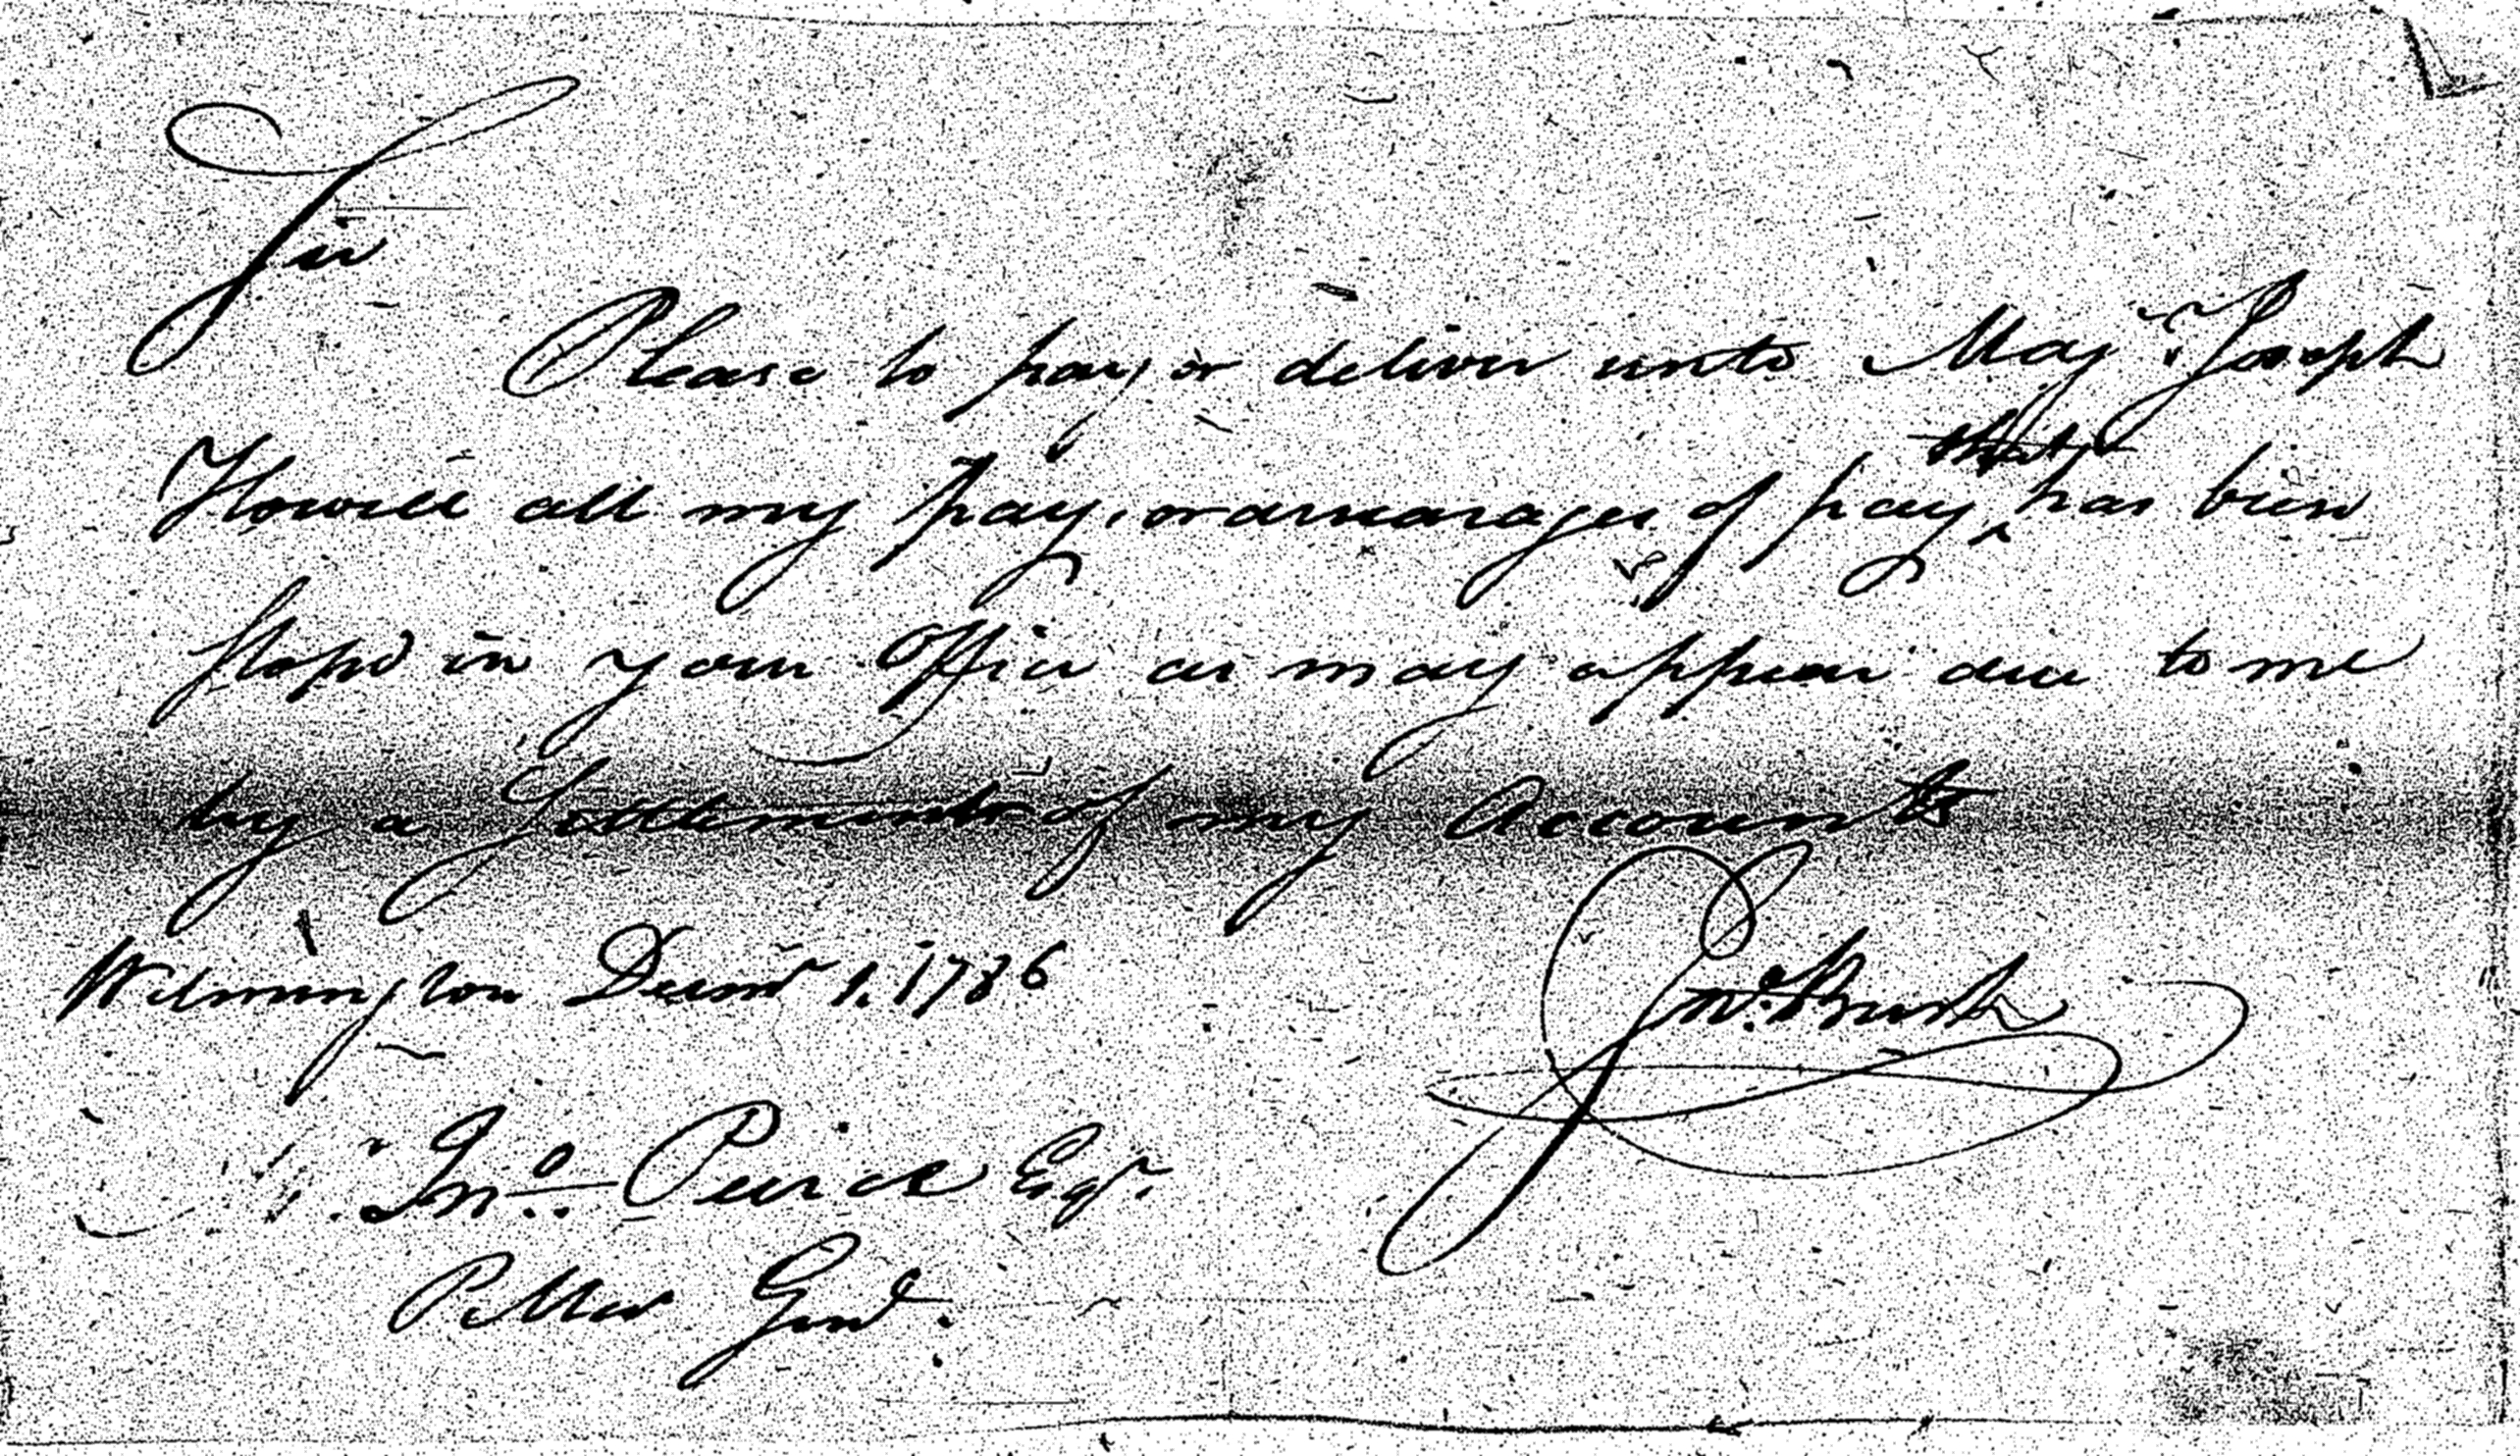 Sir
Please to pay or deliver unto Maj. Joseph
Howell all my pay, or arrearages of pay that has been
stopd in your Office as may appear due to me
by a Settlement of my Accounts
Wilmington Decmr 1. 1786
Jno. Bush
Jno. Peirce Esqr.
P. Mter Genl.